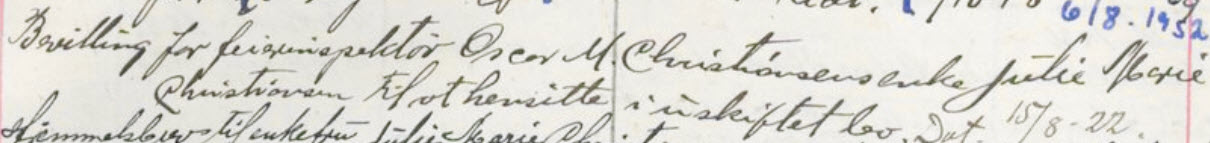 6/8.1952
Bevilling for feierinspektör Oscar M. Christiansens enke Julie Marie
Christiansen til at hensitte i uskiftet bo. Dat. 15/8-22.
Hjemmelsbrev til enkefru Julie Marie